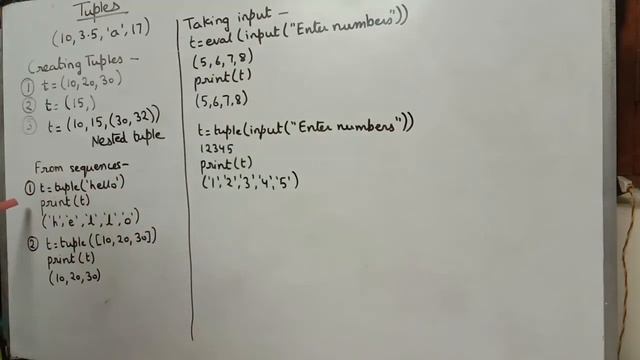 Tuples
(10, 3.5, 'a', 17)
Creating Tuples –
① t = (10, 20, 30)
② t = (15,)
③ t = (10, 15, (30, 32))
Nested tuple
From sequences –
① t = tuple('hello')
print(t)
('h', 'e', 'l', 'l', 'o')
② t = tuple([10, 20, 30])
print(t)
(10, 20, 30)
Taking input –
t = eval(input("Enter numbers"))
(5, 6, 7, 8)
print(t)
(5, 6, 7, 8)
t = tuple(input("Enter numbers"))
12345
print(t)
('1', '2', '3', '4', '5')